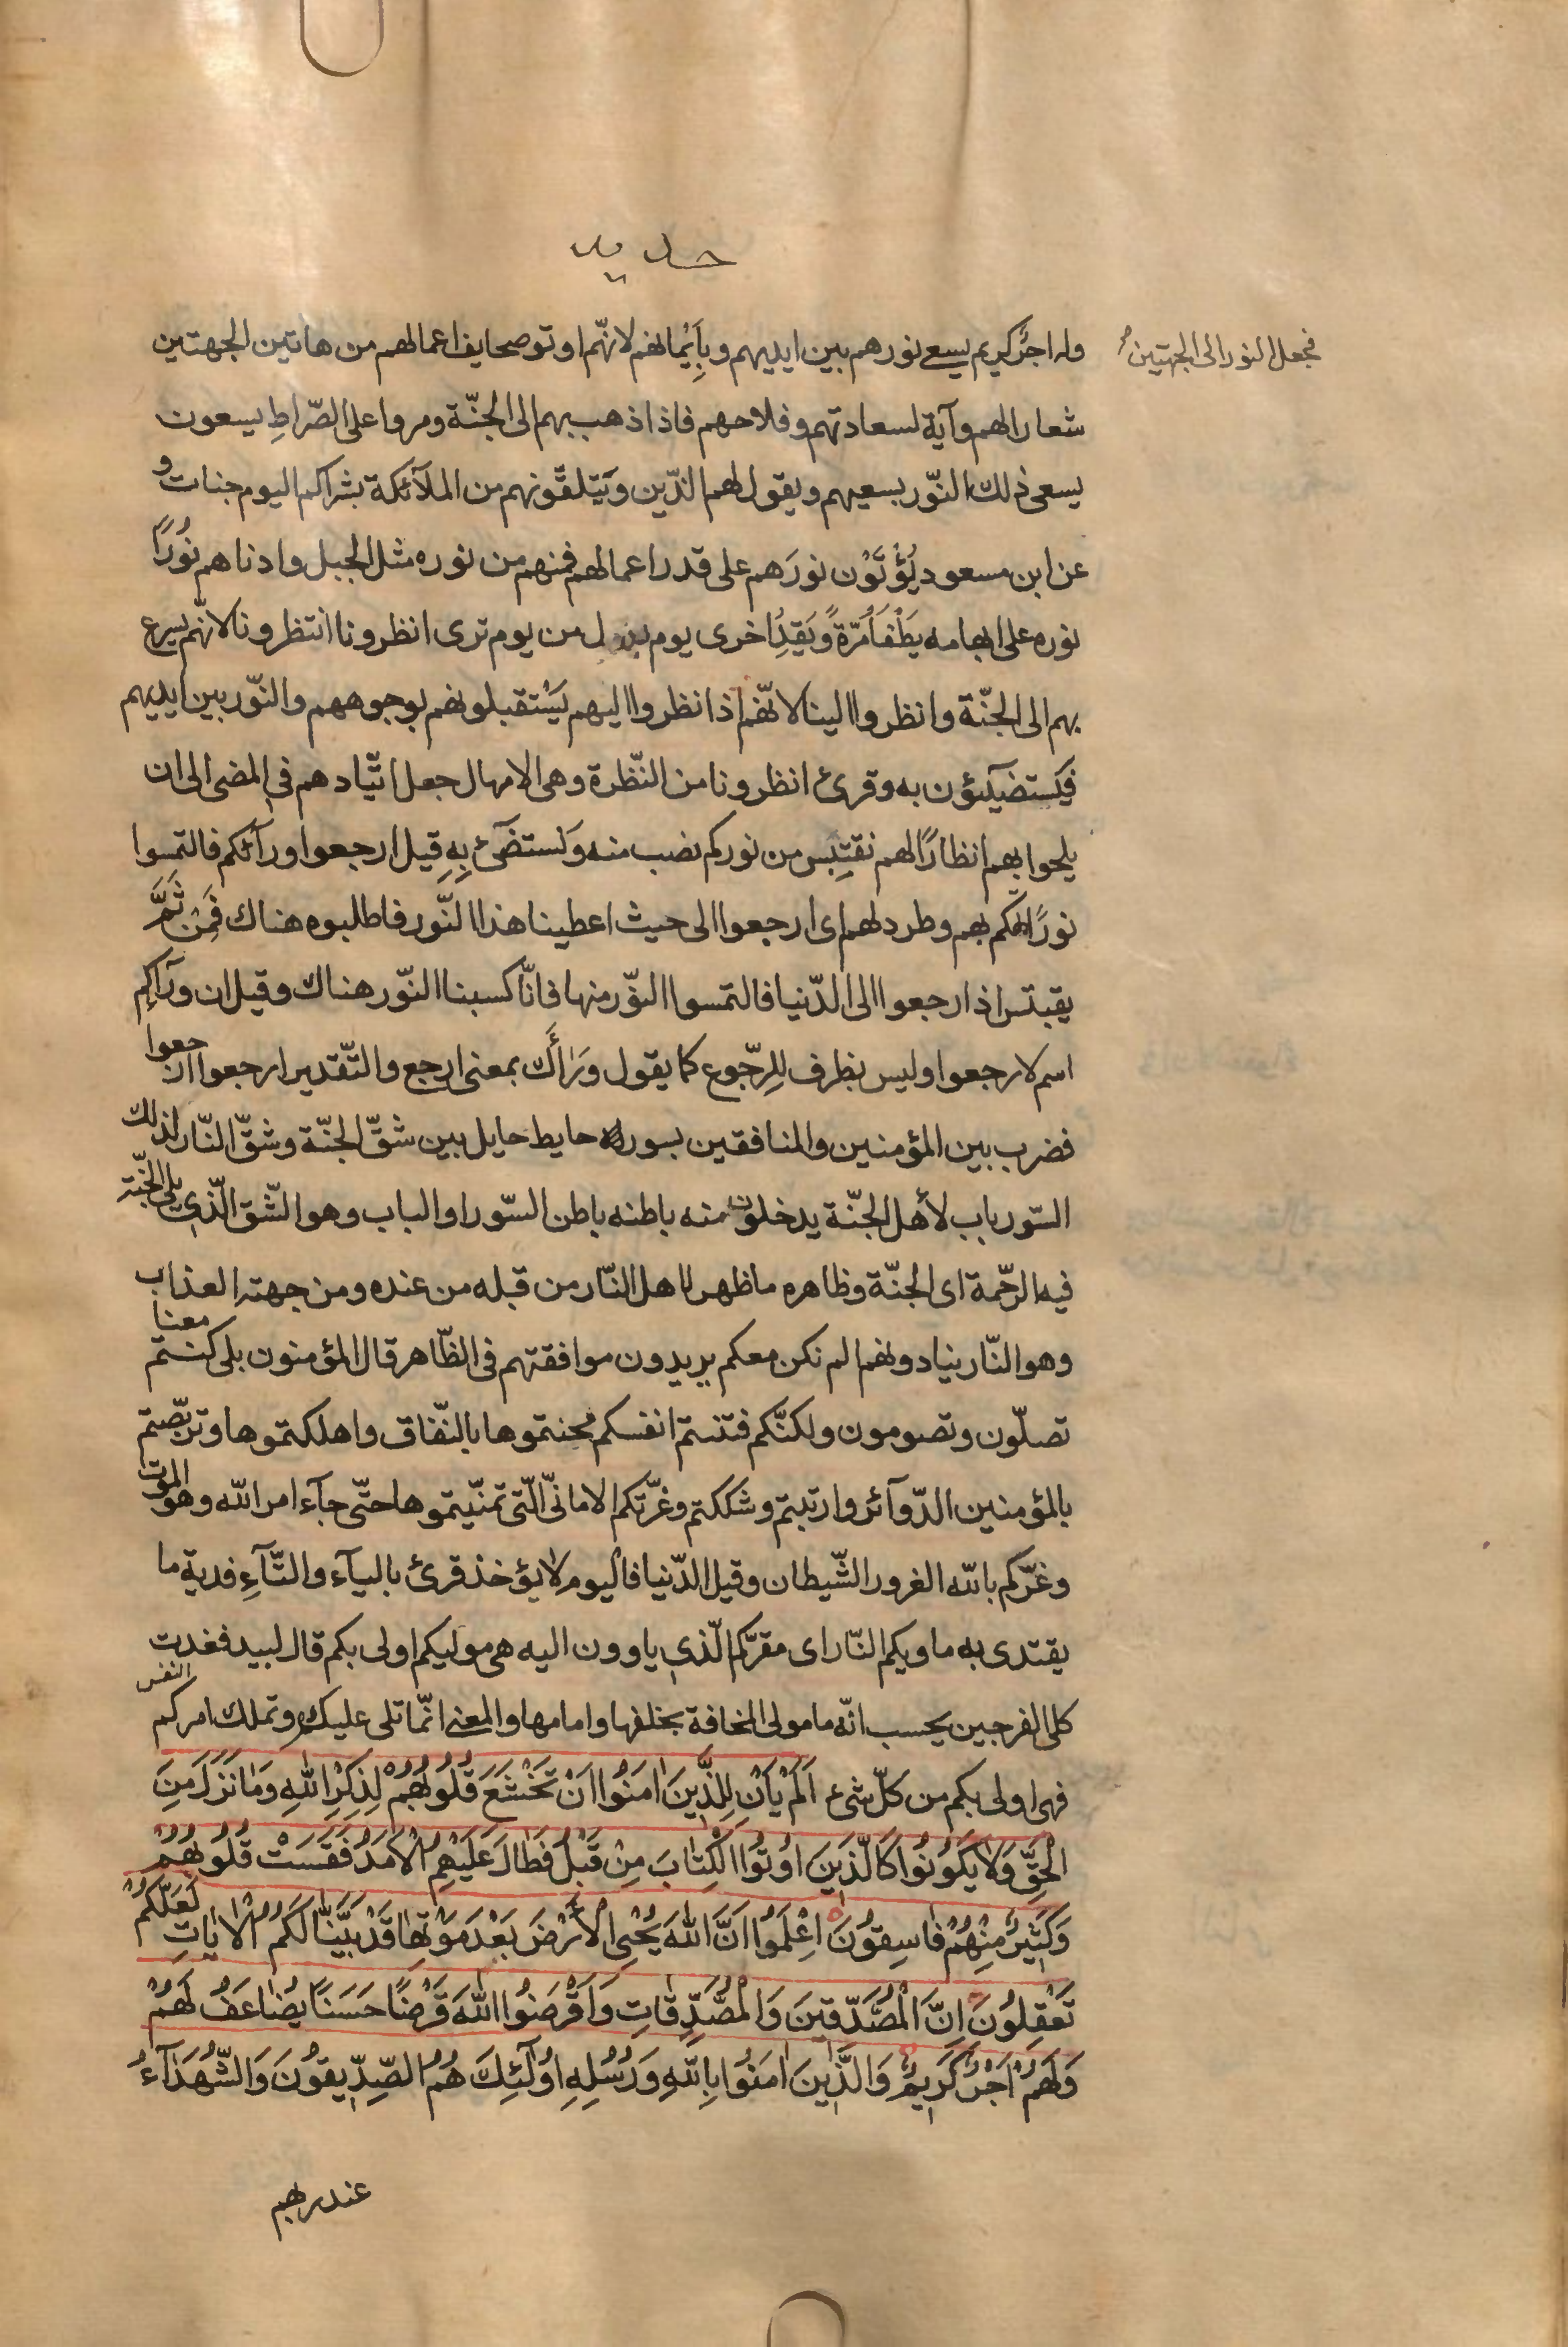 حديد
وله اجرٌ كريم يسعى نورهم بين ايديهم وبِاَيْمانهم لانّهم اوتو صحايف اعمالهم من هاتين الجهتين
فجعل النور الى الجهتين
شعارا لهم وآية لسعادتهم وفلاحهم فاذا ذهب بهم الى الجنّة ومروا على الصّراطِ يسعون
يسعى ذلك النّور بسعيهم ويقول لهم الذّين ويَتلقّونهم من الملآئكة بشراكم اليوم جنات و
عن ابن مسعود يُؤْتَوْن نورَهم على قدر اعمالهم فمنهم من نوره مثل الجبل وادناهم نُورًا
نوره على ابهامه يَطْفَأُ مرّةً ويَقِدُ اخرى يوم بدل من يوم ترى انظرونا انتظرونا لانّهم يسرع
بهم الى الجنّة وانظروا الينا لانّهم اذا نظروا اليهم يَسْتقبلونهم بوجوههم والنّور بين ايديهم
فيَستضيٓئون به وقرئ انظرونا من النّظرة وهى الامهال جعل اتّيادهم في المضى الى ان
يلحوا بهم انظارًا لهم نقتبِس من نوركم نصب منه ونَستضٓئ بِهِ قيل ارجعوا ورآئكم فالتمسوا
نورًا تهكم بهم وطرد لهم اى ارجعوا الى حيث اعطينا هذا النّور فاطلبوه هناك فَمِنْ ثَمَّ
يقبتس اذ ارجعوا الى الدّنيا فالتمسوا النّور منها فانّا كسبنا النّور هناك وقيل ان ورآكم
اسم لارجعوا وليس بظرف للِرّجوع كما يقول وَرَأَك بمعنى ارجع والتّقدير ارجعوا ارجعوا
فضرب بين المؤمنين والمنافقين بسور له حايط حايل بين شقّ الجنّة وشقّ النّار لذلك
السّور باب لأهل الجنّة يدخلون منه باطنه باطن السّور او الباب وهو الشّق الّذى يلى الجنّة
فيه الرّحمة اى الجنّة وظاهره ما ظهر لاهل النّار من قبله من عنده ومن جهته العذاب
وهو النّار ينادونهم الم نكن معكم يريدون موافقتهم فى الظّاهر قال المؤمنون بلى كنتم معنا
تصلّون وتصومون ولكنّكم فتنتم انفسكم محنتموها بالنّفاق واهلكتموها وتربّصتم
بالمؤمنين الدّوآئر وارتبتم وشككتم وغرّتكم الامانىّ الّتى تمنّيتموها حتّى جآء امر الله وهو الموت
وغرّكم بالله الغرور الشّيطان وقيل الدّنيا فاليوم لا يؤخذ قرئ باليآء والتّآءِ فدية ما
يقتدى به ماويكم النّار اى مقرّكم الّذى ياوون اليه هى موليكم اولى بكم قال لبيد فغدت
كلى الفرجين يحسب انّه مامولى المخافة بخلفها وامامها والمعنى انّها تلى عليكم وتملك امركم النفس
فهى اولى بكم من كلّ شئ اَلَمْ يَأنِ لِلّذَينَ اٰمَنُوا اَنْ تَخْشَعَ قُلُوبُهُمْ لِذِكِرْ اللهِ وَمَا نَزَلَ مِنَ
الْحَقِّ وَلَا يَكوُنُوا كَالّذَينَ اوُتوُا الْكِتَابَ مِنْ قَبْلُ فَطٰالَ عَلَيْهِمُ الْاَمَدُ فَقَسَتْ قُلُوبُهُمْ
وَكَثيرٌ مِنْهُمْ فٰاسِقوُنَ اِعْلَمَوُا اَنَّ اللهَ يُحْيِى الْاَرْضَ بَعْدَ مَوْتِهٰا قَدْ بَيَّنّٰا لَكُمُ الْاٰيٰاتِ لَعَلَّكُمْ
تَعْقِلُونَ اِنَّ الْمُصَّدّقينَ وَالْمُصَّدِّقٰاتِ وَاَقْرَضوُا اللهَ قَرْضًا حَسَنًا يُضٰاعَفُ لَهُمْ
وَلَهُمْ اَجْرٌ كَريمٌ وَالَّذينَ اٰمَنوُا بِاللهِ وَرُسُلِهِ اوُلٓئِكَ هُمُ الصِّدّيقوُنَ وَالشُّهَدٰآءُ
عند ربهم